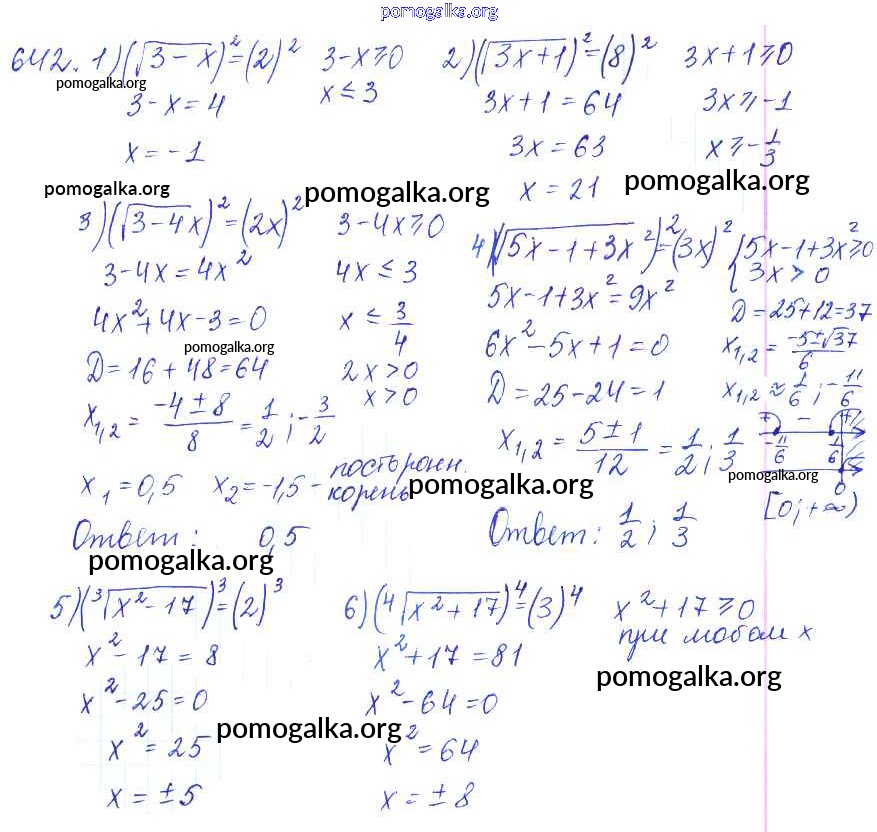 pomogalka.org
642. 1) (√(3-x))² = (2)²   3-x ≥ 0
pomogalka.org
3-x = 4   x ≤ 3
x = -1
pomogalka.org
2) (√(3x+1))² = (8)²   3x+1 ≥ 0
3x+1 = 64   3x ≥ -1
3x = 63   x ≥ -1/3
pomogalka.org   pomogalka.org
x = 21
3) (√(3-4x))² = (2x)²   3-4x ≥ 0
3-4x = 4x²   4x ≤ 3
4x²+4x-3 = 0   x ≤ 3/4
pomogalka.org
D = 16+48 = 64   2x > 0
x₁,₂ = (-4±8)/8 = 1/2; -3/2   x > 0
x₁ = 0,5   x₂ = -1,5 - посторонн. корень
Ответ: 0,5
pomogalka.org
4) (√(5x-1+3x²))² = (3x)²   { 5x-1+3x² ≥ 0
3x > 0
5x-1+3x² = 9x²   D = 25+12 = 37
6x²-5x+1 = 0   x₁,₂ = (-5±√37)/6
D = 25-24 = 1   x₁,₂ ≈ 1/6; -11/6
x₁,₂ = (5±1)/12 = 1/2; 1/3
+ - +
-11/6   1/6
pomogalka.org
0
pomogalka.org
[0; +∞)
Ответ: 1/2; 1/3
5) (³√(x²-17))³ = (2)³
x²-17 = 8
x²-25 = 0
x² = 25
pomogalka.org
x = ±5
6) (⁴√(x²+17))⁴ = (3)⁴   x²+17 ≥ 0
при любом x
x²+17 = 81
pomogalka.org
x²-64 = 0
x² = 64
x = ±8